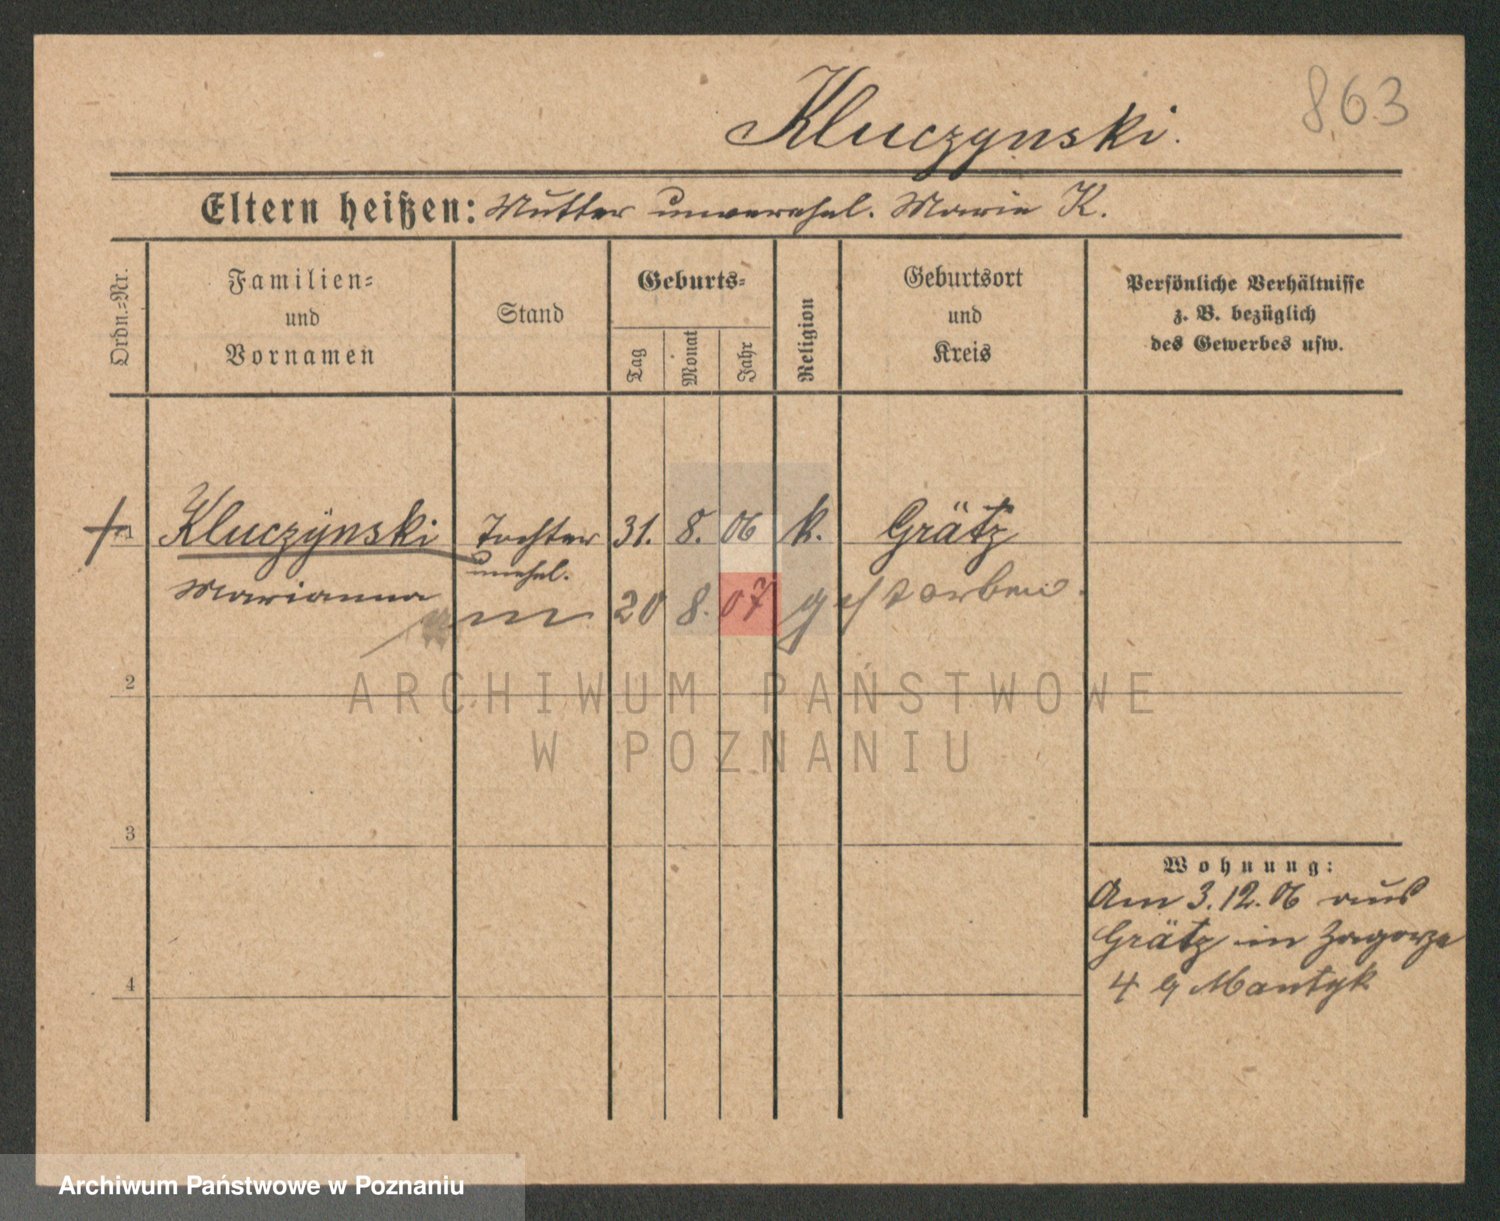 863
Kluczynski.
Eltern heißen: Mutter unverehel. Marie K.
Ordn.-Nr.
Familien-
und
Vornamen
Stand
Geburts-
Tag
Monat
Jahr
Religion
Geburtsort
und
Kreis
Persönliche Verhältnisse
z. B. bezüglich
des Gewerbes usw.
1 Kluczynski Tochter 31. 8. 06 k. Grätz
unehel.
Marianna
20 8. 07 gestorben.
2
ARCHIWUM PAŃSTWOWE
W POZNANIU
3
Wohnung:
Am 3.12.06 aus
Grätz in Zagorze
4 Mantyk
4
Archiwum Państwowe w Poznaniu